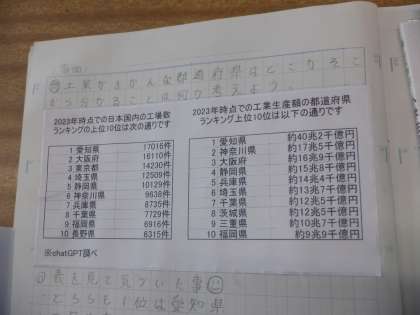 工業がさかんな都道府県はどこか?そこ
から分かることは何か考えよう。
2023年時点での日本国内の工場数
ランキングの上位10位は次の通りです
1 愛知県 17016件
2 大阪府 16110件
3 東京都 14230件
4 埼玉県 12509件
5 静岡県 10129件
6 神奈川県 9638件
7 兵庫県 8735件
8 千葉県 7729件
9 福岡県 6916件
10 長野県 6315件
※chatGPT調べ
2023年時点での工業生産額の都道府県
ランキング上位10位は以下の通りです
1 愛知県 約40兆2千億円
2 神奈川県 約17兆5千億円
3 大阪府 約16兆9千億円
4 静岡県 約15兆8千億円
5 兵庫県 約14兆4千億円
6 埼玉県 約13兆7千億円
7 千葉県 約12兆5千億円
8 茨城県 約12兆6千億円
9 三重県 約10兆7千億円
10 福岡県 約9兆9千億円
表を見て気づいた事
どちらも1位は愛知県